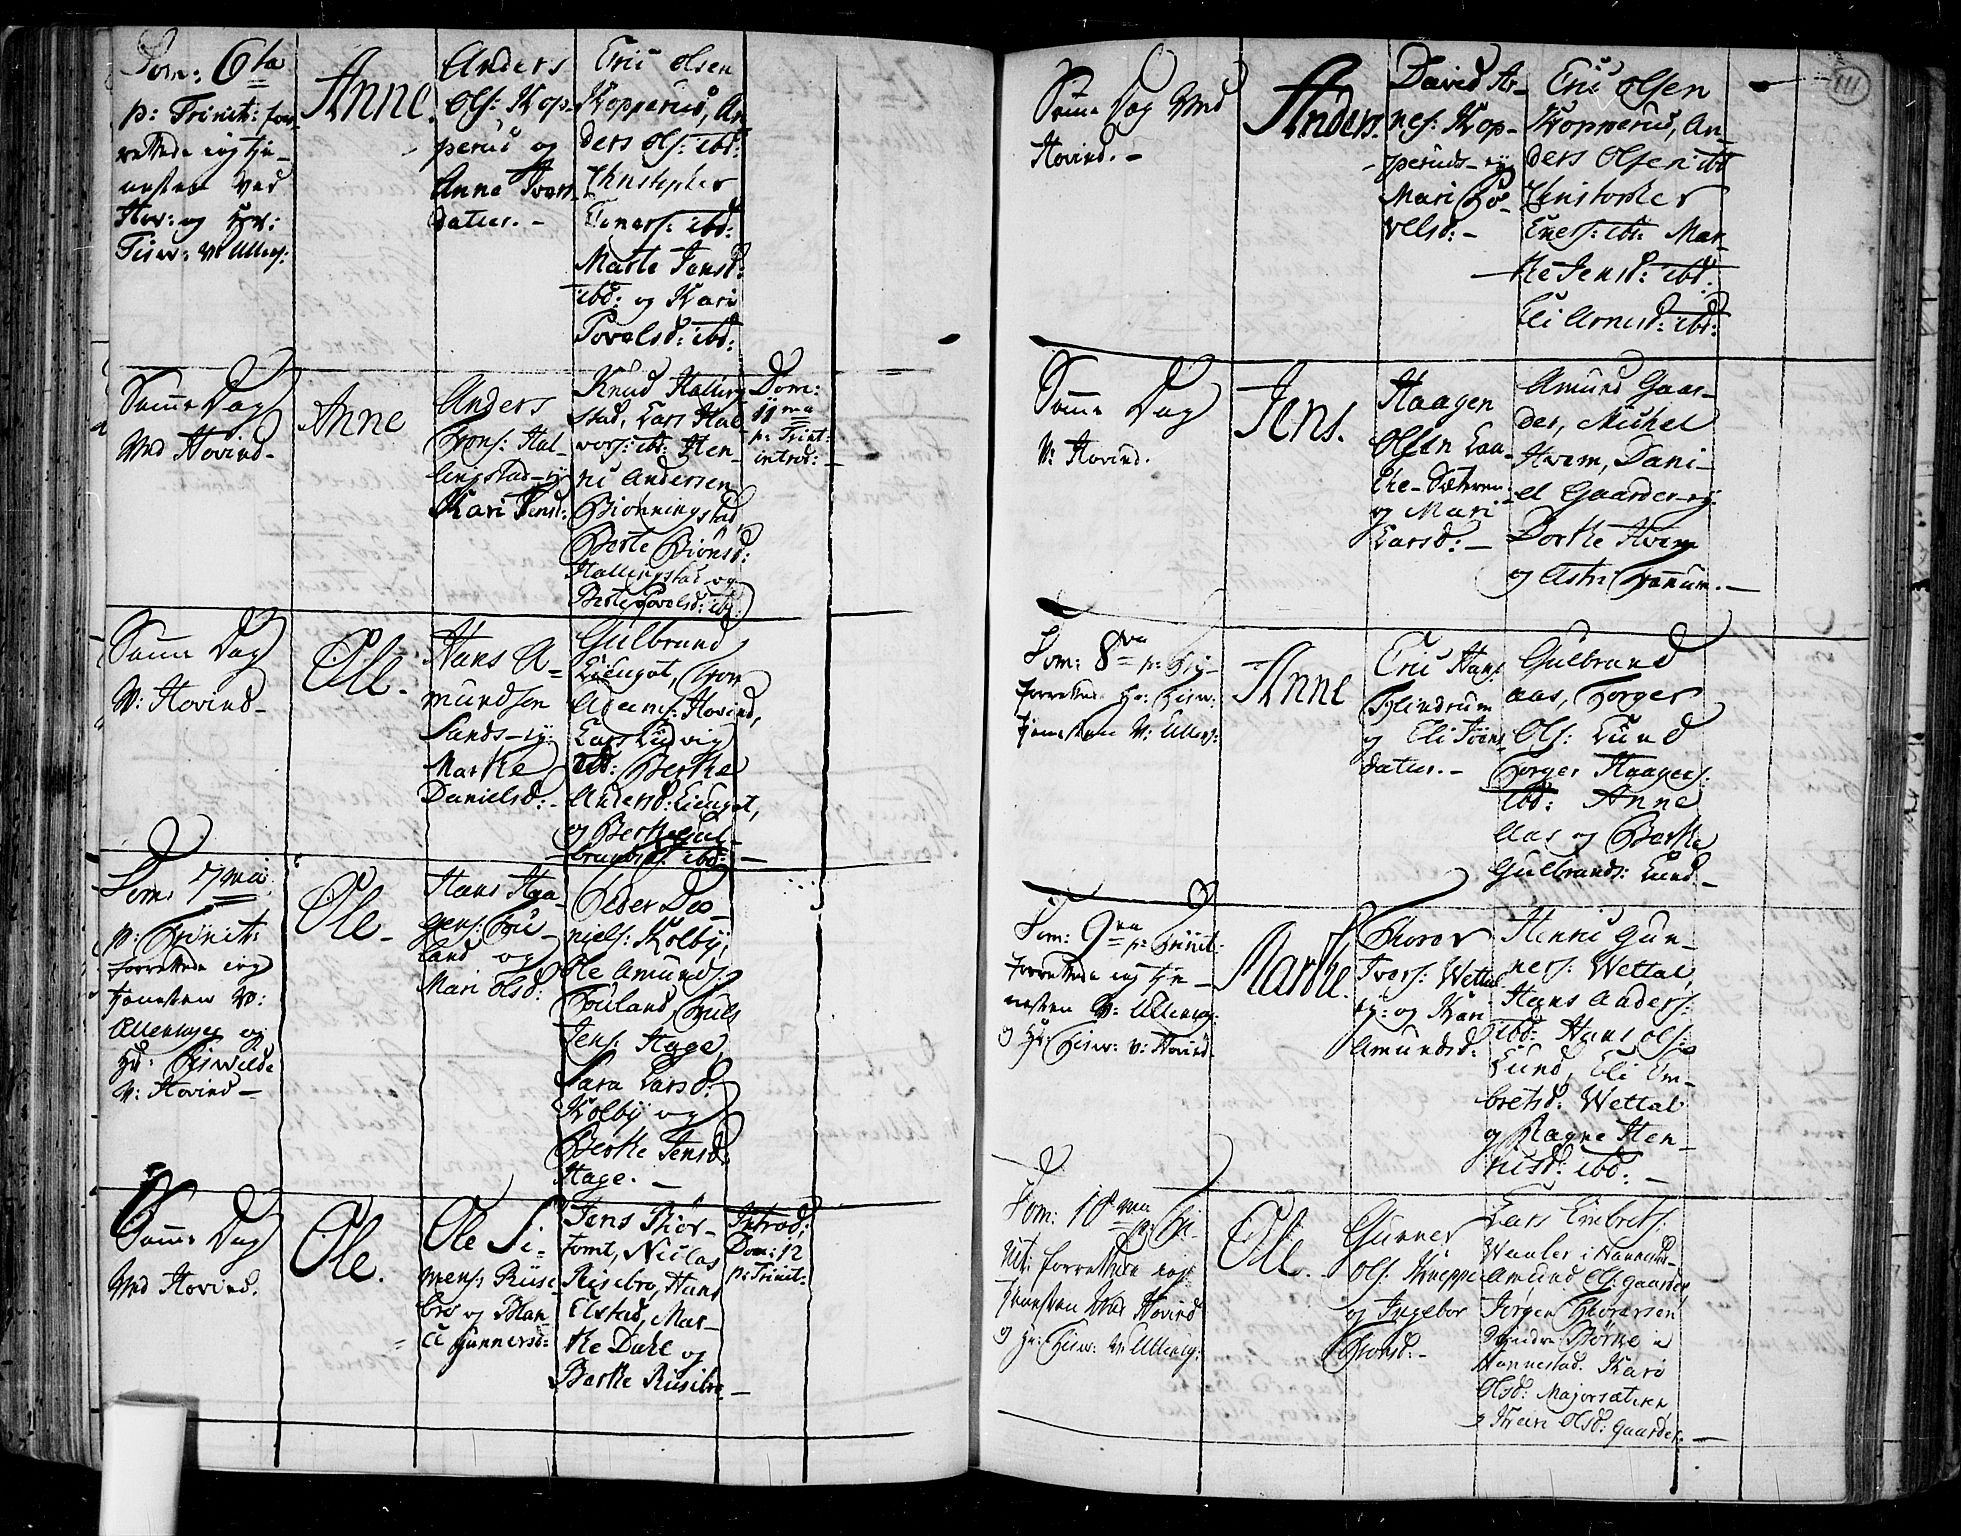 Dom: 6ta
p: Trinit: for-
rettede ieg tje-
nesten ved
Hov: og Hr:
Tisw: v: Ullens:
Anne.
Anders
Ols: Kop-
perud og
Anne Ivers
datter. -
Eric Olsen
Kopperud, An
ders Ols: ibd:
Christopher
Einers: ibd:
Marte Jensd:
ibd: og Kari
Povelsd: ibd:
Samme Dag
ved Hovind -
Anne
Anders
Trons: Hal-
lingstad - og
Kari Jensd:
Knud Halling
stad, Lars Hal
vors: ibd: Hen-
ric Andersen
Biönningstad,
Berte Biönsd:
Hallingstad og
Berte Povelsd: ibd:
Dom:
11ma
p: Trinit:
introd:
Samme Dag
v: Hovind -
Ole.
Hans A-
mundsen
Sands - og
Marthe
Danielsd: -
Gulbrand
Lienget, Tron
Adams: Hovind,
Lars Ludvig
ibd: Berthe
Andersd: Lienget,
og Berthe Gul-
brandsd: ibd: -
Dom: 7ma
p: Trinit:
forrettede ieg
tjenesten v:
Ullensager og
Hr: Tiswilde
v: Hovind -
Ole -
Hans Haa-
gens: Fru-
land og
Mari Olsd:
Peder Da-
niels: Kolby,
Ole Amunds:
Fruland, Truls
Jens: Hage,
Sara Larsd:
Kolby og
Berthe Jensd:
Hage. -
Samme Dag
ved Hovind.
Ole.
Ole Si-
mens: Riise
bro og Man-
ci Gunnersd:
Jens Biör-
tomt, Niclas
Risebro, Hans
Elstad, Mar-
the Dahl og
Berthe Riisebro -
Introd:
Dom: 12
p: Trinit:
111
Samme Dag ved
Hovind. -
Anders.
David Ar-
nes: Kop-
peruds - og
Mari Po-
velsd: -
Eric Olsen
Kopperud, An-
ders Olsen ibd
Christopher
Eners: ibd: Mar-
the Jensd: ibd:
Eli Arnesd: ibd:
Samme Dag
v: Hovind.
Jens.
Haagen
Olsen Laa-
che - Sæteren
og Mari
Larsd: -
Amund Gaar-
der, Michel
Hvam, Dani-
el Gaarder og
Dorthe Hvam
og Astri -
Dom: 8va p: Tri-
forrettede Hr: Tisw:
tjenesten v: Ullens:
Anne
Eric Hans:
Flindrum
og Eli Iöns
datter. -
Gulbrand
Aas, Torger
Ols: Lund
Torger Haagens:
ibd: Anne
Aas og Berthe
Gulbrands: Lund -
Dom: 9na p: Trinit:
forrettede ieg tje-
nesten v: Ulleng:
og Hr: Tisw: v: Hovind.
Marthe.
Thorer
Ivers: Wettal
og Kari
Amundsd:
Henric Gun-
ners: Wettal,
Hans Anders:
ibd: Hans Ols:
Lund, Eli Em-
bretsd: Wettal
og Ragne Hen-
ricsd: ibd: -
Dom: 10ma p: Tri-
nit: forrettede ieg
tjenesten ved Hovind
og Hr: Tisw: v: Ulleng:
Ole.
Gunner
Ols: Kneppe
og Ingebor
Tronsd: -
Lars Embrets:
Waaler i Nannestd-
Amund Ols: Gaarder
Jörgen Thorersen
Börke i
Nannestad. Kari
Olsd: Majorsæteren
og Kari Olsd: Gaarder. -